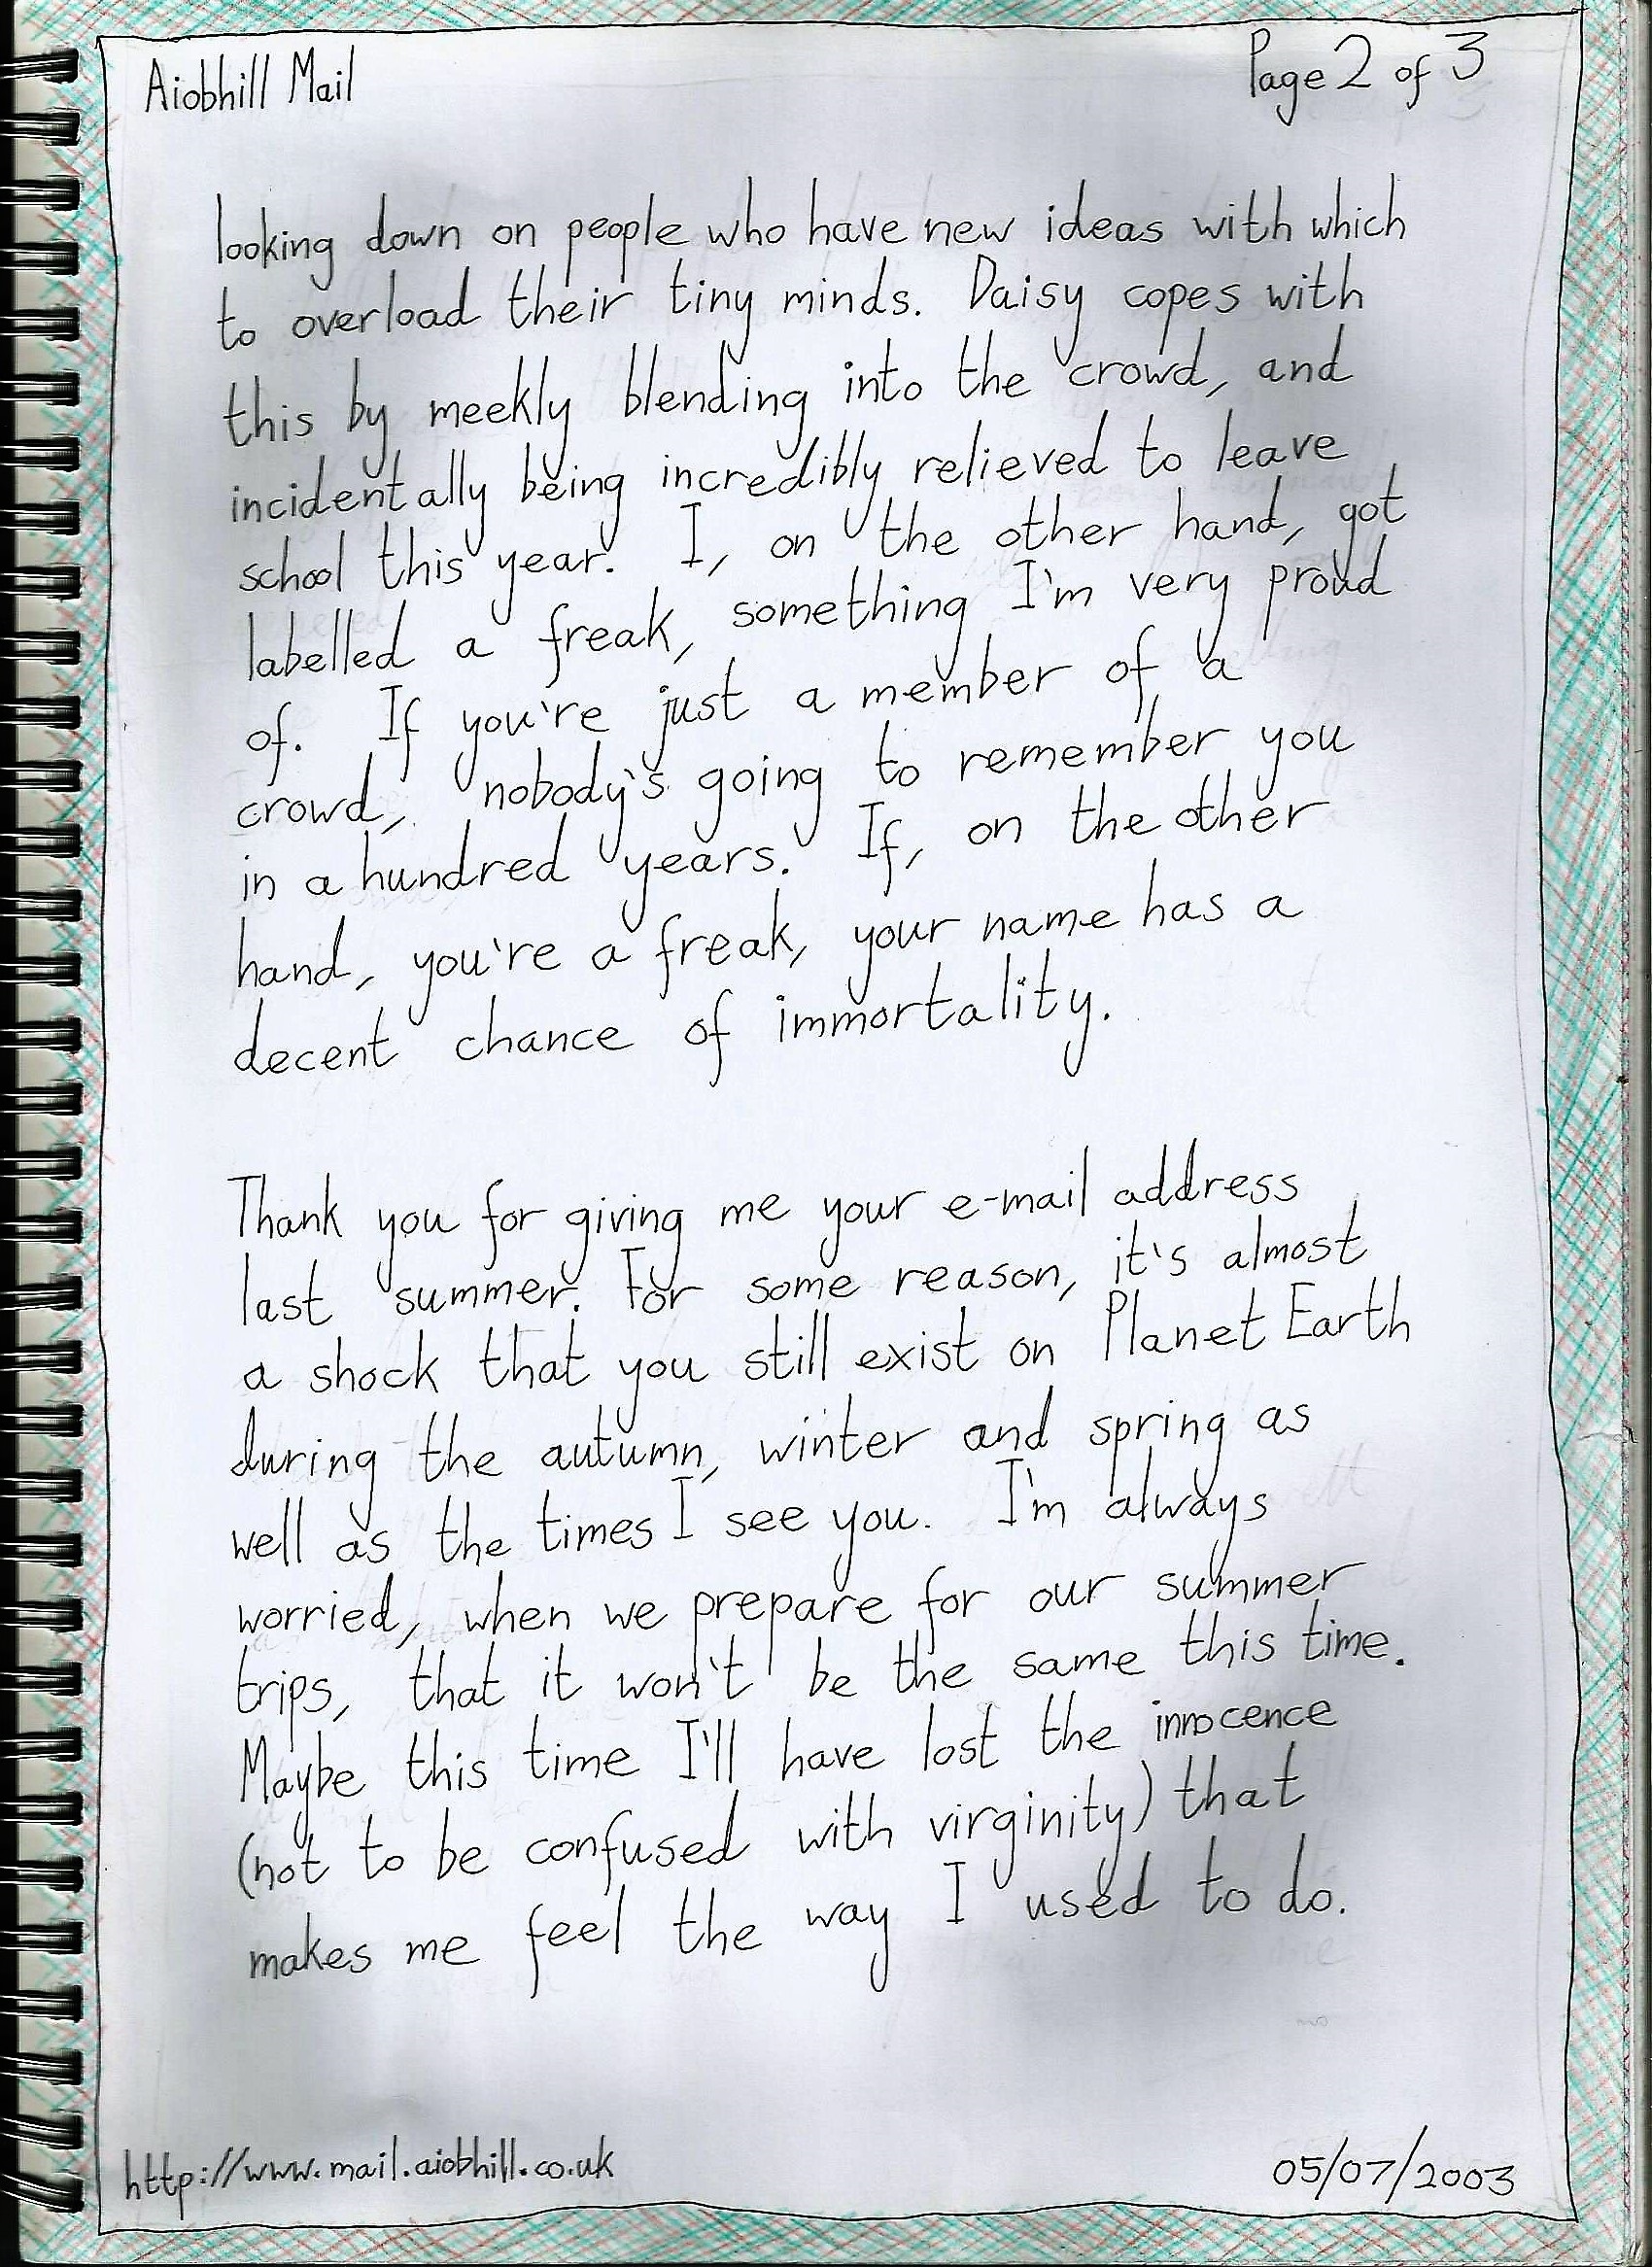 Aiobhill Mail
Page 2 of 3
looking down on people who have new ideas with which
to overload their tiny minds. Daisy copes with
this by meekly blending into the crowd, and
incidentally being incredibly relieved to leave
school this year. I, on the other hand, got
labelled a freak, something I'm very proud
of. If you're just a member of a
crowd, nobody's going to remember you
in a hundred years. If, on the other
hand, you're a freak, your name has a
decent chance of immortality.
Thank you for giving me your e-mail address
last summer. For some reason, it's almost
a shock that you still exist on Planet Earth
during the autumn, winter and spring as
well as the times I see you. I'm always
worried, when we prepare for our summer
trips, that it won't be the same this time.
Maybe this time I'll have lost the innocence
(not to be confused with virginity) that
makes me feel the way I used to do.
http://www.mail.aiobhill.co.uk
05/07/2003